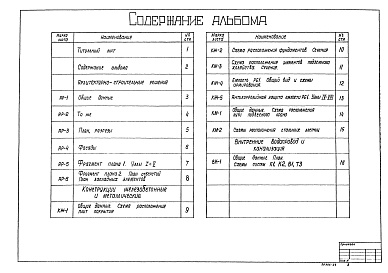 СОДЕРЖАНИЕ АЛЬБОМА
Марка листа
Наименование
№ стр
Титульный лист
1
Содержание альбома
2
Архитектурно-строительные решения
АР-1
Общие данные
3
АР-2
То же
4
АР-3
План, разрезы
5
АР-4
Фасады
6
АР-5
Фрагмент плана 1. Узлы
7
АР-6
Фрагмент плана 2. План отверстий
План закладных элементов
8
Конструкции железобетонные
и металлические
КЖ-1
Общие данные. Схема расположения
плит покрытия
9
Марка листа
Наименование
№ стр
КЖ-2
Схема расположения фундаментов. Сечения
10
КЖ-3
Схема расположения элементов подземного
хозяйства. Сечения
11
КЖ-4
Емкость РЕ1. Общий вид и схемы
армирования
12
КЖ-5
Антикоррозийная защита емкости РЕ1.
13
КМ-1
Общие данные. Схема расположения
14
КМ-2
Схема расположения стальных
15
Внутренние водопровод и
канализация
ВК-1
Общие данные. План
Схемы систем К1, К2, В1, Т3
16